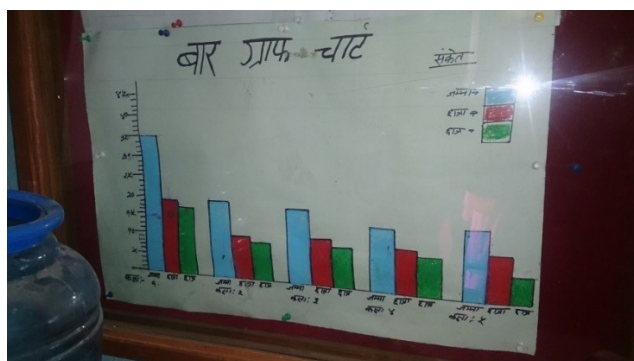 बार ग्राफ चार्ट
संकेत
जम्मा =
छात्रा =
छात्र =
जम्मा छात्रा छात्र
कक्षा: १
जम्मा छात्रा छात्र
कक्षा: २
जम्मा छात्रा छात्र
कक्षा: ३
जम्मा छात्रा छात्र
कक्षा: ४
जम्मा छात्रा छात्र
कक्षा: ५